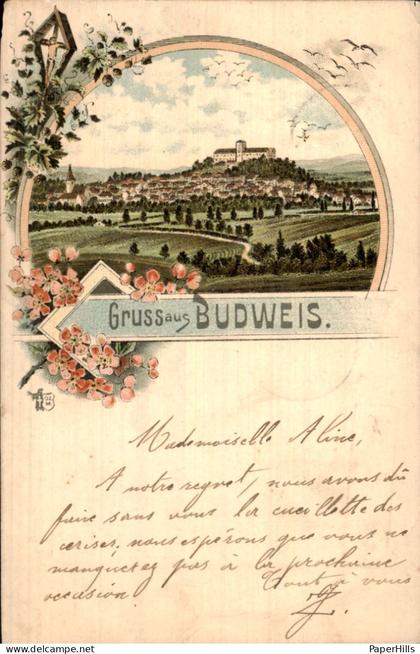 Gruss aus BUDWEIS.
Mademoiselle Aline,
A notre regret, nous avons dû
faire sans vous la cueillette des
cerises, nous espérons que vous ne
manquerez pas à la prochaine
occasion. Tout à vous
www.delcampe.net PaperHills